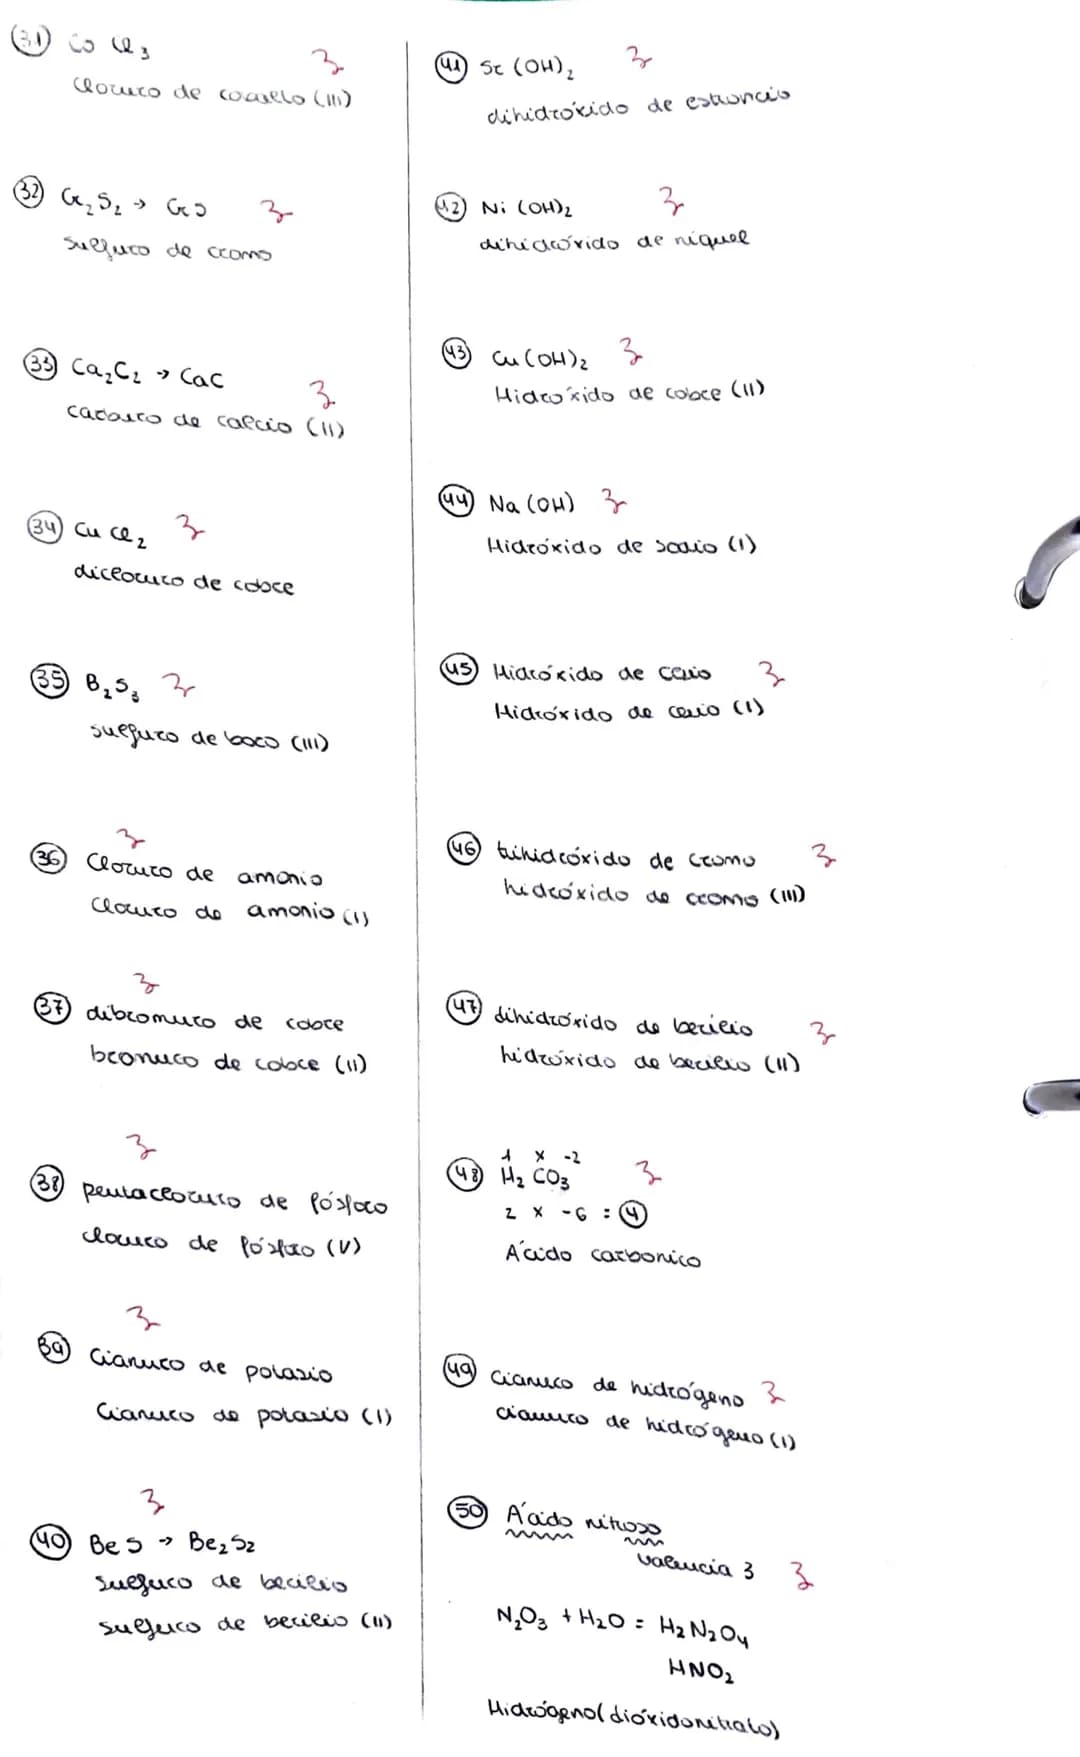 31 CoCl3
Cloruro de cobalto (III)
32 Cr2S2 → CrS
Sulfuro de cromo
33 Ca2C2 → CaC
Carburo de calcio (II)
34 CuCl2
dicloruro de cobre
35 B2S3
sulfuro de boro (III)
36 Cloruro de amonio
Cloruro de amonio (I)
37 dibromuro de cobre
bromuro de cobre (II)
38 pentacloruro de fósforo
cloruro de fósforo (V)
39 Cianuro de potasio
Cianuro de potasio (I)
40 BeS → Be2S2
Sulfuro de berilio
sulfuro de berilio (II)
41 Sr (OH)2
dihidróxido de estroncio
42 Ni (OH)2
dihidróxido de níquel
43 Cu (OH)2
Hidróxido de cobre (II)
44 Na (OH)
Hidróxido de sodio (I)
45 Hidróxido de
Hidróxido de (I)
46 trihidróxido de cromo
hidróxido de cromo (III)
47 dihidróxido de berilio
hidróxido de berilio (II)
1 x -2
48 H2 CO3
2 x -6 = 4
Ácido carbonico
49 Cianuro de hidrógeno
cianuro de hidrógeno (I)
50 Ácido nitroso
valencia 3
N2O3 + H2O = H2N2O4
HNO2
Hidrógeno(dióxidonitrato)